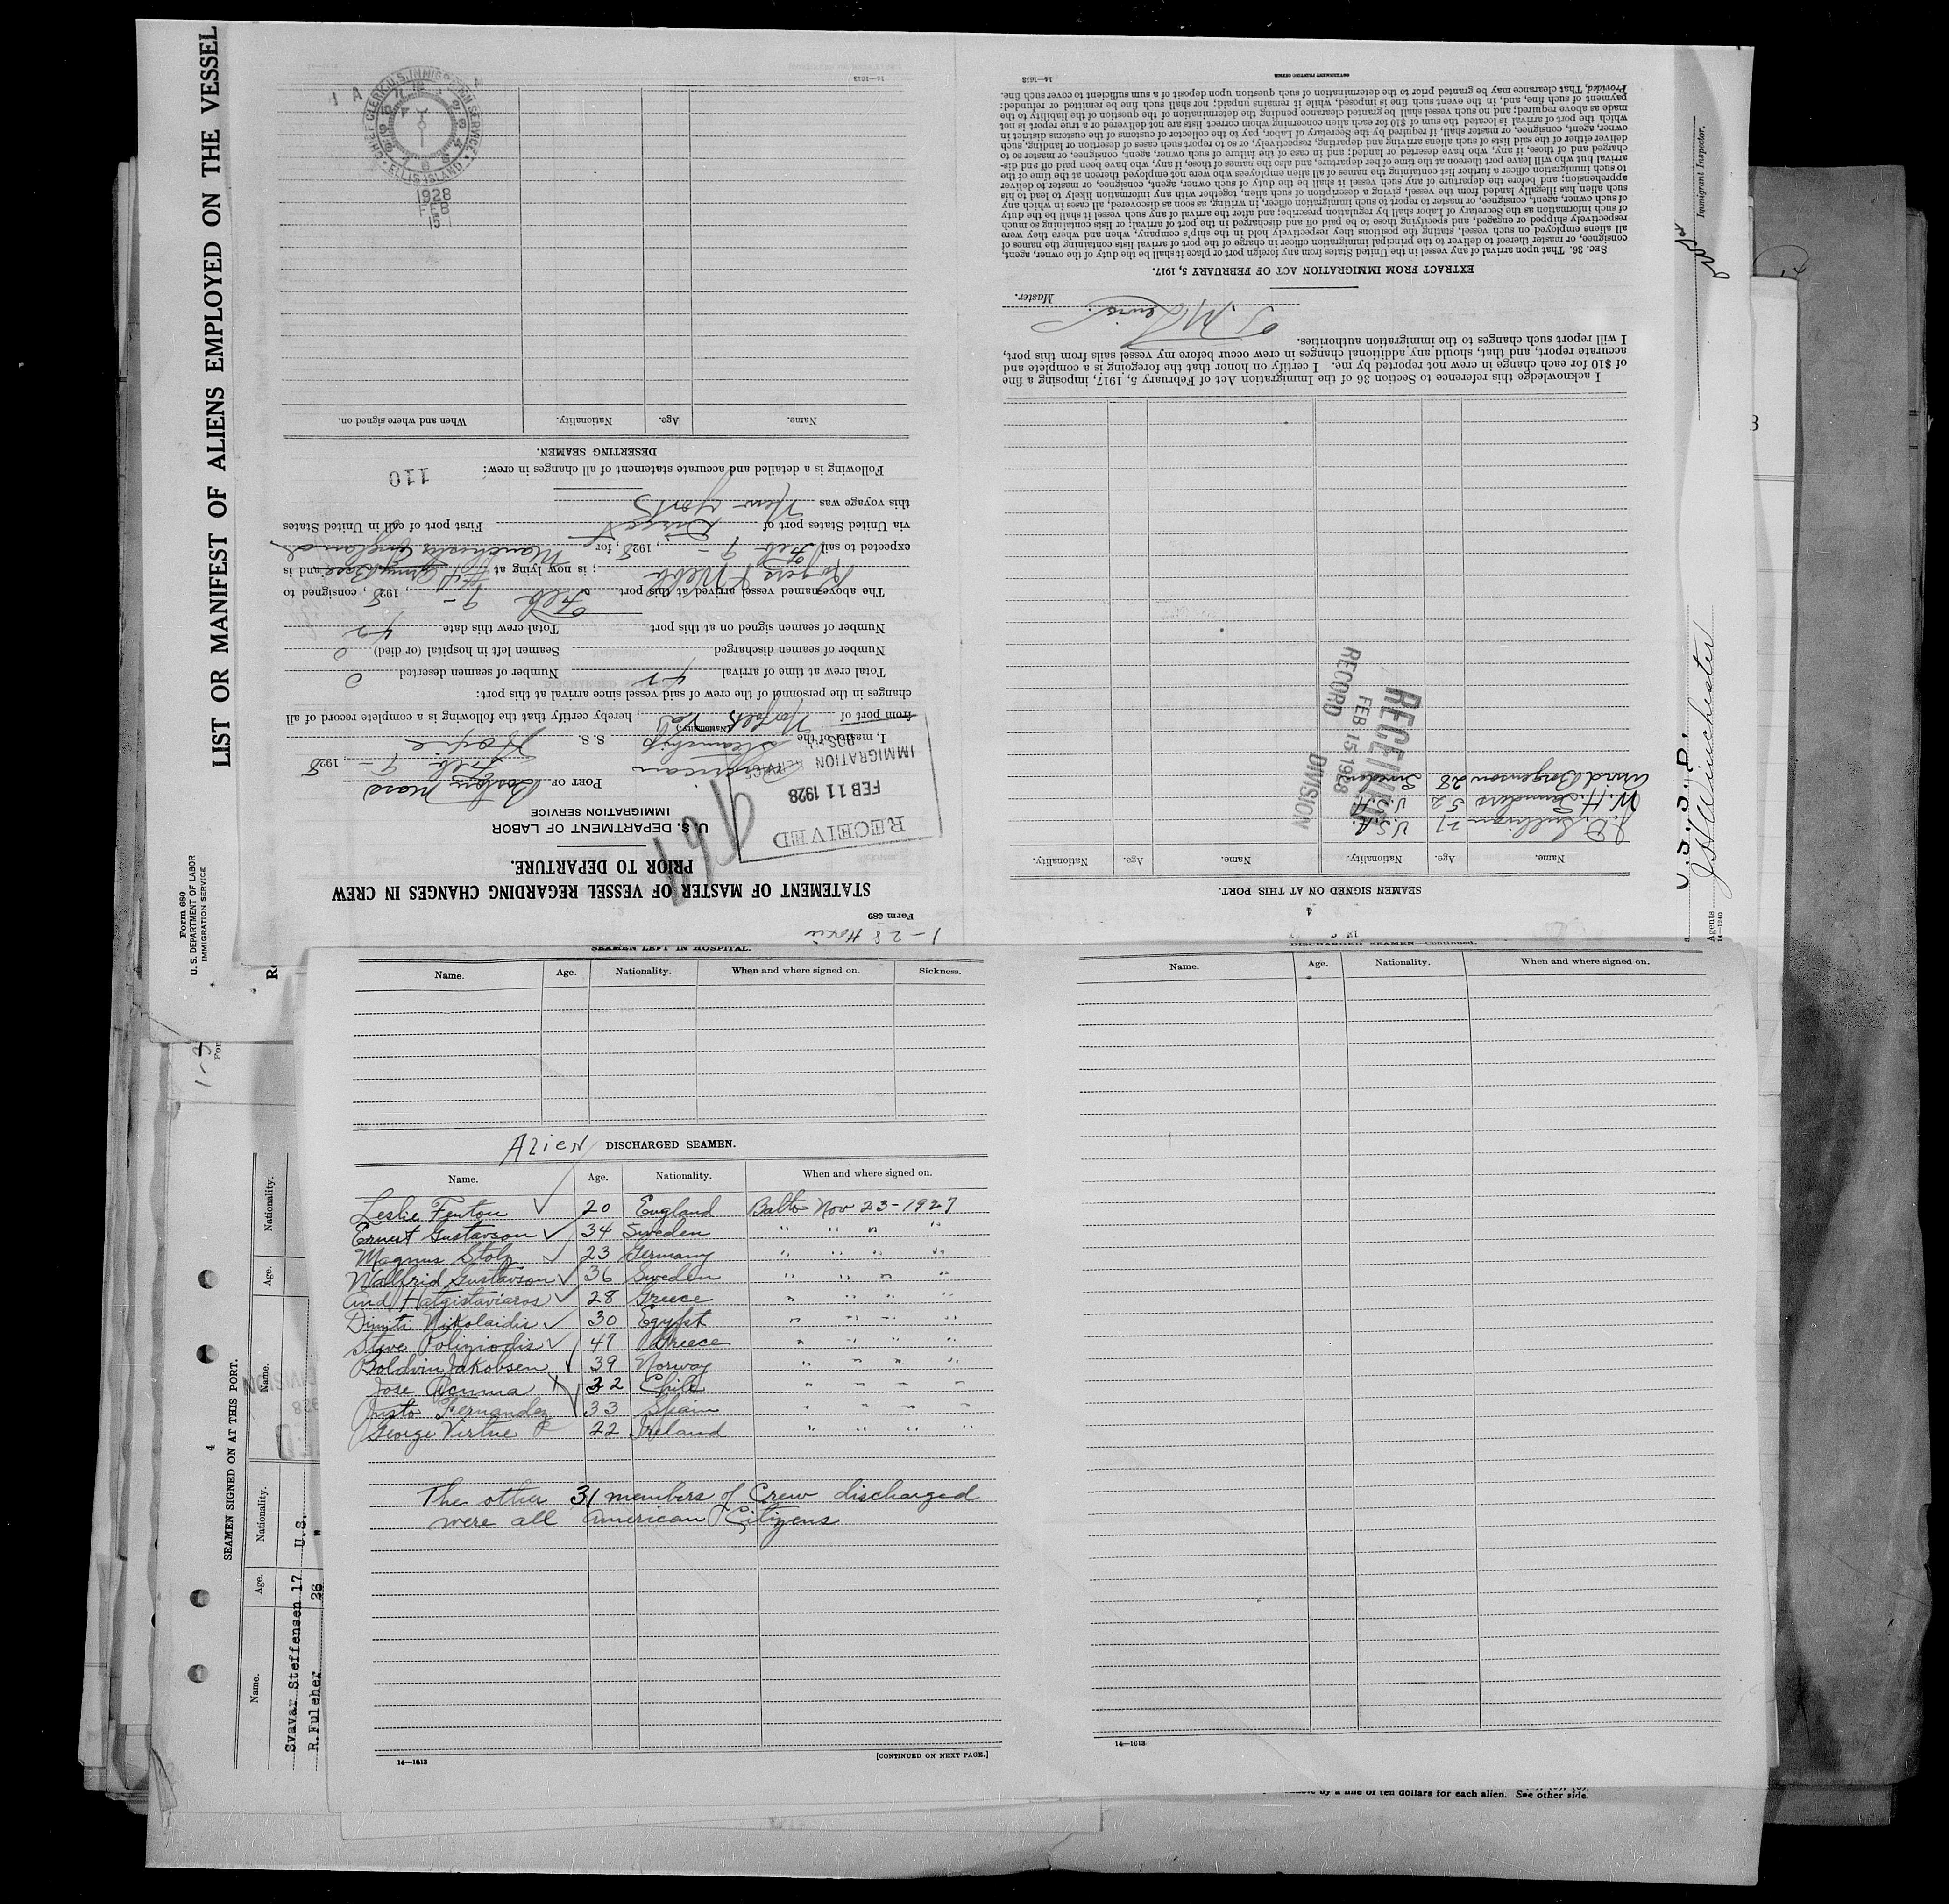 LIST OR MANIFEST OF ALIENS EMPLOYED ON THE VESSEL
Form 680
U. S. DEPARTMENT OF LABOR
IMMIGRATION SERVICE
1-28 Hoxie
Form 689
STATEMENT OF MASTER OF VESSEL REGARDING CHANGES IN CREW
PRIOR TO DEPARTURE.
U. S. DEPARTMENT OF LABOR
IMMIGRATION SERVICE
RECEIVED
FEB 11 1928
IMMIGRATION SERVICE
Port of Boston Mass
Feb 9-, 1928
I, master of the American Steamship S. S. Hoxie
(Nationality.)
from port of Norfolk Va, hereby certify that the following is a complete record of all
changes in the personnel of the crew of said vessel since arrival at this port:
Total crew at time of arrival 42 Number of seamen deserted 0
Number of seamen discharged Seamen left in hospital (or died) 0
Number of seamen signed on at this port Total crew this date 42
The above-named vessel arrived at this port Feb 9-, 1928, consigned to
Rogers & Webb; is now lying at Army Base and is
expected to sail Feb 9-, 1928, for Manchester England
via United States port of Direct First port of call in United States
this voyage was New York
Following is a detailed and accurate statement of all changes in crew:
110
DESERTING SEAMEN.
Name. Age. Nationality. When and where signed on.
CHIEF CLERK U.S. IMMIGRATION SERVICE
ELLIS ISLAND
1928
FEB
15
14—1613
4
SEAMEN SIGNED ON AT THIS PORT.
Name. Age. Nationality. Name. Age. Nationality.
J. D. Sullivan 27 U.S.A.
W. H. Saunders 52 U.S.A.
Arvid Borgenson 28 Sweden
RECEIVED
FEB 15 1928
RECORD DIVISION
I acknowledge this reference to Section 36 of the Immigration Act of February 5, 1917, imposing a fine
of $10 for each change in crew not reported by me. I certify on honor that the foregoing is a complete and
accurate report, and that, should any additional changes in crew occur before my vessel sails from this port,
I will report such changes to the immigration authorities.
Master.
EXTRACT FROM IMMIGRATION ACT OF FEBRUARY 5, 1917.
SEC. 36. That upon arrival of any vessel in the United States from any foreign port or place it shall be the duty of the owner, agent,
consignee, or master thereof to deliver to the principal immigration officer in charge of the port of arrival lists containing the names of
all aliens employed on such vessel, stating the positions they respectively hold in the ship's company, when and where they were
respectively shipped or engaged, and specifying those to be paid off and discharged in the port of arrival; or lists containing so much
of such information as the Secretary of Labor shall by regulation prescribe; and after the arrival of any such vessel it shall be the duty
of such owner, agent, consignee, or master to report to such immigration officer, in writing, as soon as discovered, all cases in which any
such alien has illegally landed from the vessel, giving a description of such alien, together with any information likely to lead to his
apprehension; and before the departure of any such vessel it shall be the duty of such owner, agent, consignee, or master to deliver
to such immigration officer a further list containing the names of all alien employees who were not employed thereon at the time of the
arrival but who will leave port thereon at the time of her departure, and also the names of those, if any, who have been paid off and dis-
charged and of those, if any, who have deserted or landed; and in case of the failure of such owner, agent, consignee, or master so to
deliver either of the said lists of such aliens arriving and departing, respectively, or so to report such cases of desertion or landing, such
owner, agent, consignee, or master shall, if required by the Secretary of Labor, pay to the collector of customs of the customs district in
which the port of arrival is located the sum of $10 for each alien concerning whom correct lists are not delivered or a true report is not
made as above required; and no such vessel shall be granted clearance pending the determination of the question of the liability to the
payment of such fine, and, in the event such fine is imposed, while it remains unpaid; nor shall such fine be remitted or refunded:
Provided, That clearance may be granted prior to the determination of such question upon deposit of a sum sufficient to cover such fine.
14—1613 GOVERNMENT PRINTING OFFICE
Immigrant Inspector.
J H Winchester
Agents
14—1240
SEAMEN LEFT IN HOSPITAL.
Name. Age. Nationality. When and where signed on. Sickness.
Alien DISCHARGED SEAMEN.
Name. Age. Nationality. When and where signed on.
Leslie Fenton 20 England Balto Nov 23-1927
Ernest Gustavson 34 Sweden " " " "
Magnus Stolz 23 Germany " " " "
Walfrid Gustavson 36 Sweden " " " "
And Hatgistavieros 28 Greece " " " "
Dimiti Nikolaidis 30 Egypt " " " "
Steve Poliniodis 47 Greece " " " "
Boldvin Jakobsen 39 Norway " " " "
Jose Acuma 32 Chile " " " "
Justo Fernandez 33 Spain " " " "
George Virtue 22 Ireland " " " "
The other 31 members of Crew discharged
were all American Citizens
14—1613 [CONTINUED ON NEXT PAGE.]
DISCHARGED SEAMEN—Continued.
Name. Age. Nationality. When and where signed on.
14—1613
4
SEAMEN SIGNED ON AT THIS PORT.
Name. Age. Nationality. Name. Age. Nationality.
Svavar Steffensen 17 U.S.
R. Fulcher 26 "
by a fine of ten dollars for each alien. See other side